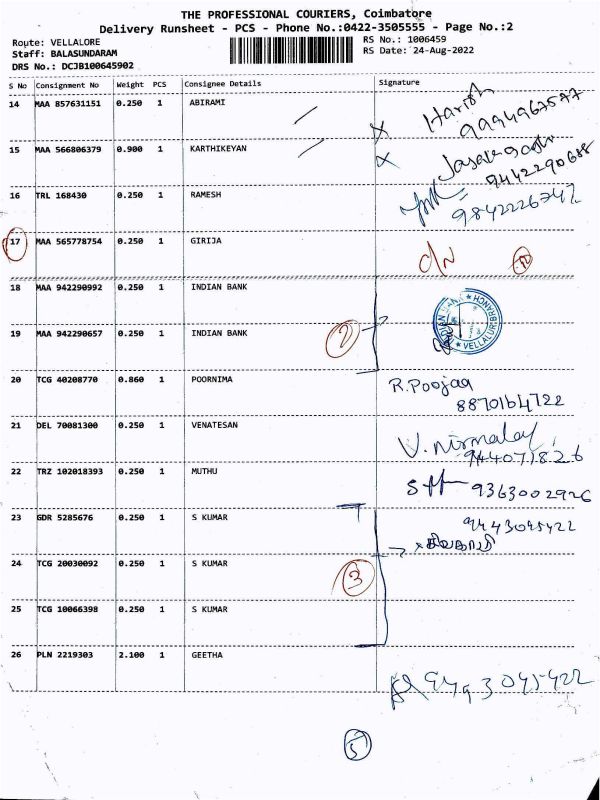 THE PROFESSIONAL COURIERS, Coimbatore
Delivery Runsheet - PCS - Phone No.:0422-3505555 - Page No.:2
Route: VELLALORE
RS No.: 1006459
Staff: BALASUNDARAM
RS Date: 24-Aug-2022
DRS No.: DCJB100645902
S No Consignment No Weight PCS Consignee Details Signature
14 MAA 857631151 0.250 1 ABIRAMI Harish
9994967577
15 MAA 566806379 0.900 1 KARTHIKEYAN
9442290688
16 TRL 168430 0.250 1 RAMESH
9842226747
17 MAA 565778754 0.250 1 GIRIJA
18 MAA 942290992 0.250 1 INDIAN BANK
INDIAN BANK VELLALUR BRANCH
19 MAA 942290657 0.250 1 INDIAN BANK 2
20 TCG 40208770 0.860 1 POORNIMA R.Poojaa
8870164722
21 DEL 70081300 0.250 1 VENATESAN V. Nirmala
9440771826
22 TRZ 102018393 0.250 1 MUTHU 9363002926
23 GDR 5285676 0.250 1 S KUMAR 9443045422
24 TCG 20030092 0.250 1 S KUMAR 3
25 TCG 10066398 0.250 1 S KUMAR
26 PLN 2219303 2.100 1 GEETHA 9443045422
5